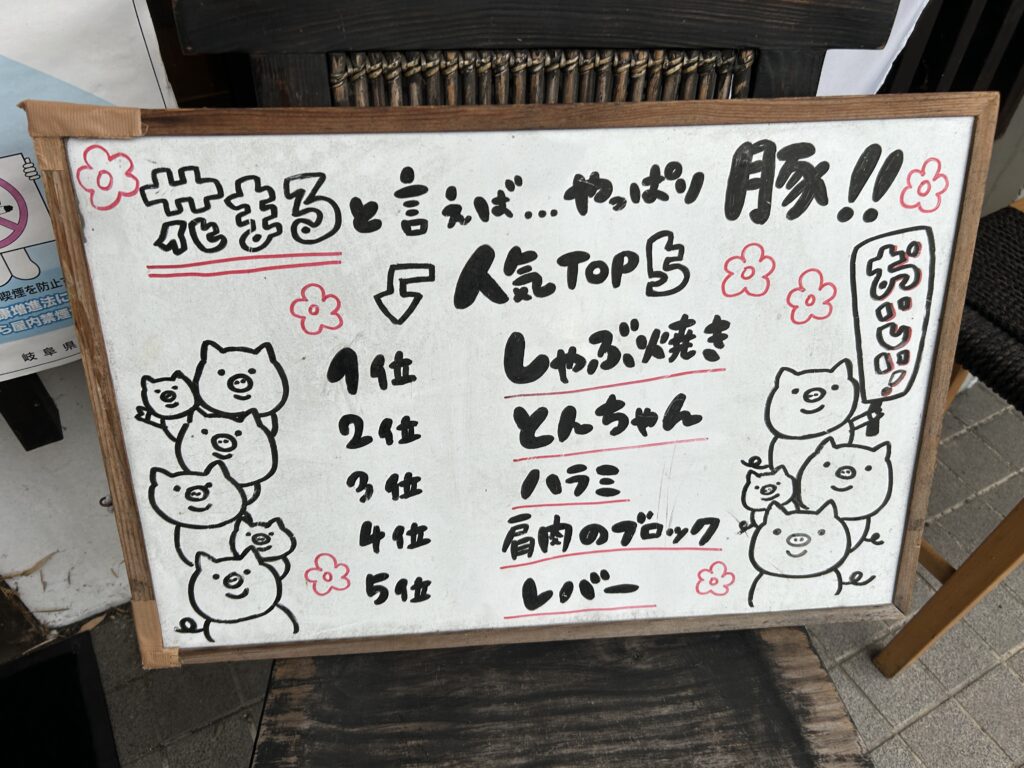 花まると言えば...やっぱり豚!!
人気TOP5
おいしい!
1位 しゃぶ焼き
2位 とんちゃん
3位 ハラミ
4位 肩肉のブロック
5位 レバー
喫煙を防止
康増進法に
ら屋内禁煙
岐阜県